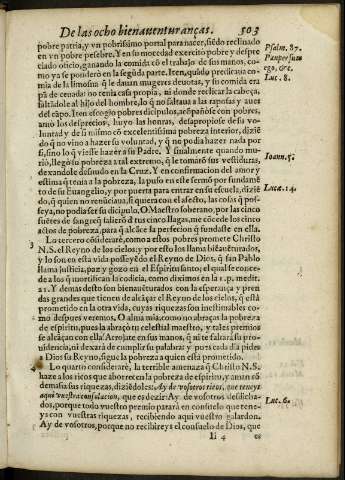 De las ocho bienauenturanças. 503
pobre patria, y vn pobrissimo portal para nacer, siẽdo reclinado
en vn pobre pesebre. Y en su mocedad exercito pobre y despre
ciado oficio, ganando la comida cõ el trabajo de sus manos, co-
mo ya se ponderò en la segũda parte. Iten, quãdo predicaua co-
mia de la limosna q̃ le dauan mugeres deuotas, y su comida era
pã de ceuada: no tenia casa propia, ni donde reclinar la cabeça,
faltãdole al hijo del hombre, lo q̃ no faltaua a las raposas y aues
del cãpo. Iten escogio pobres dicipulos, acõpañòse con pobres,
amò los desprecios, huyo las honras, desapropiòse de su vo-
luntad y de si mismo cõ excelentissima pobreza interior, diziẽ
do q̃ no vino a hazer su voluntad, y q̃ no podia hazer nada por
si, sino lo q̃ viesse hazer a su Padre. Y finalmente quando mu-
rio, llegò su pobreza a tal extremo, q̃ le tomarõ sus vestiduras,
dexandole desnudo en la Cruz. Y en confirmacion del amor y
estima q̃ tenia a la pobreza, la puso en este sermõ por fundamẽ
to de su Euangelio, y por puerta para entrar en su escuela, diziẽ
do, q̃ quien no renũciaua, si quiera con el afecto, las cosas q̃ pos-
seya, no podia ser su dicipulo. O Maestro soberano, por las cinco
fuẽtes de sangre q̃ saliero de tus cinco llagas, me cõcede los cinco
actos de pobreza, para q̃ alcãce la perfeccion q̃ fundaste en ella.
3 Lo tercero cõsiderarè, como a estos pobres promete Christo
N.S. el Reyno de los cielos: y por esto los llama biẽauẽturados,
y lo son en esta vida posseyẽdo el Reyno de Dios, q̃ san Pablo
llama justicia, paz y gozo en el Espiritu santo; el qual se conce-
de a los q̃ mortifican la codicia, como diximos en la 1.p. medit.
21. Y demas desto son bienauẽturados con la esperança y pren
das grandes que tienen de alcãçar el Reyno de los cielos, q̃ està
prometido en la otra vida, cuyas riquezas son inestimables co-
mo despues veremos. O alma mia, como no abraças la pobreza
de espiritu, pues la abraçò tu celestial maestro, y tales premios
se alcãçan con ella? Arrojate en sus manos, q̃ ni te faltarà su pro-
uidencia, ni dexarà de cumplir su palabra: y pues cada dia pides
a Dios su Reyno, sigue la pobreza a quien està prometido.
4 Lo quarto considerarè, la terrible amenaza q̃ Christo N.S.
haze a los ricos que aborrecen la pobreza de espiritu, y aman cõ
demasia sus riquezas, diziẽdoles: Ay de vosotros ricos, que teneys
aqui vuestra consolacion, que es dezir: Ay de vosotros desdicha-
dos, porque todo vuestro premio pararà en consuelo que tene-
ys con vuestras riquezas, recibiendo aqui vuestro galardon.
Ay de vosotros, porque no recibireys el consuelo de Dios, que
Ii 4 es
Psalm. 87.
Pauper sum
ego, &c.
Luc. 8.
Ioann. 5.
Lucæ. 14.
Luc. 6.